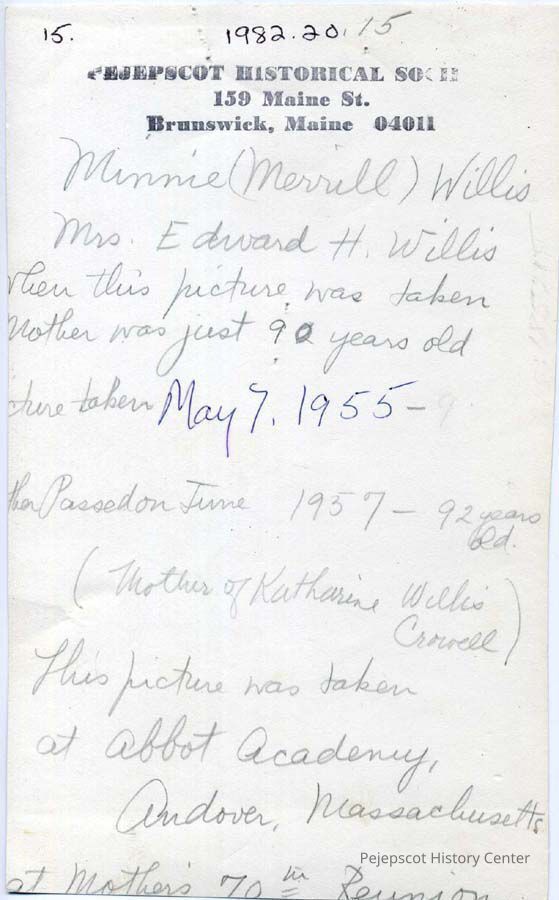 15. 1982.20.15
PEJEPSCOT HISTORICAL SOC
159 Maine St.
Brunswick, Maine 04011
Minnie (Merrill) Willis
Mrs. Edward H. Willis
when this picture was taken
Mother was just 90 years old
cture taken May 7, 1955-
ther Passed on June 1957 - 92 years
old.
(Mother of Katharine Willis
Crowell)
This picture was taken
at Abbot Academy,
Andover, Massachusetts
at Mother's 70th Reunion
Pejepscot History Center